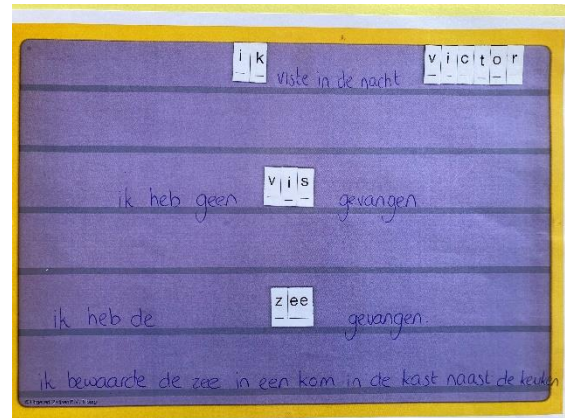 ik viste in de nacht victor
ik heb geen vis gevangen
ik heb de zee gevangen.
ik bewaarde de zee in een kom in de kast naast de keuken